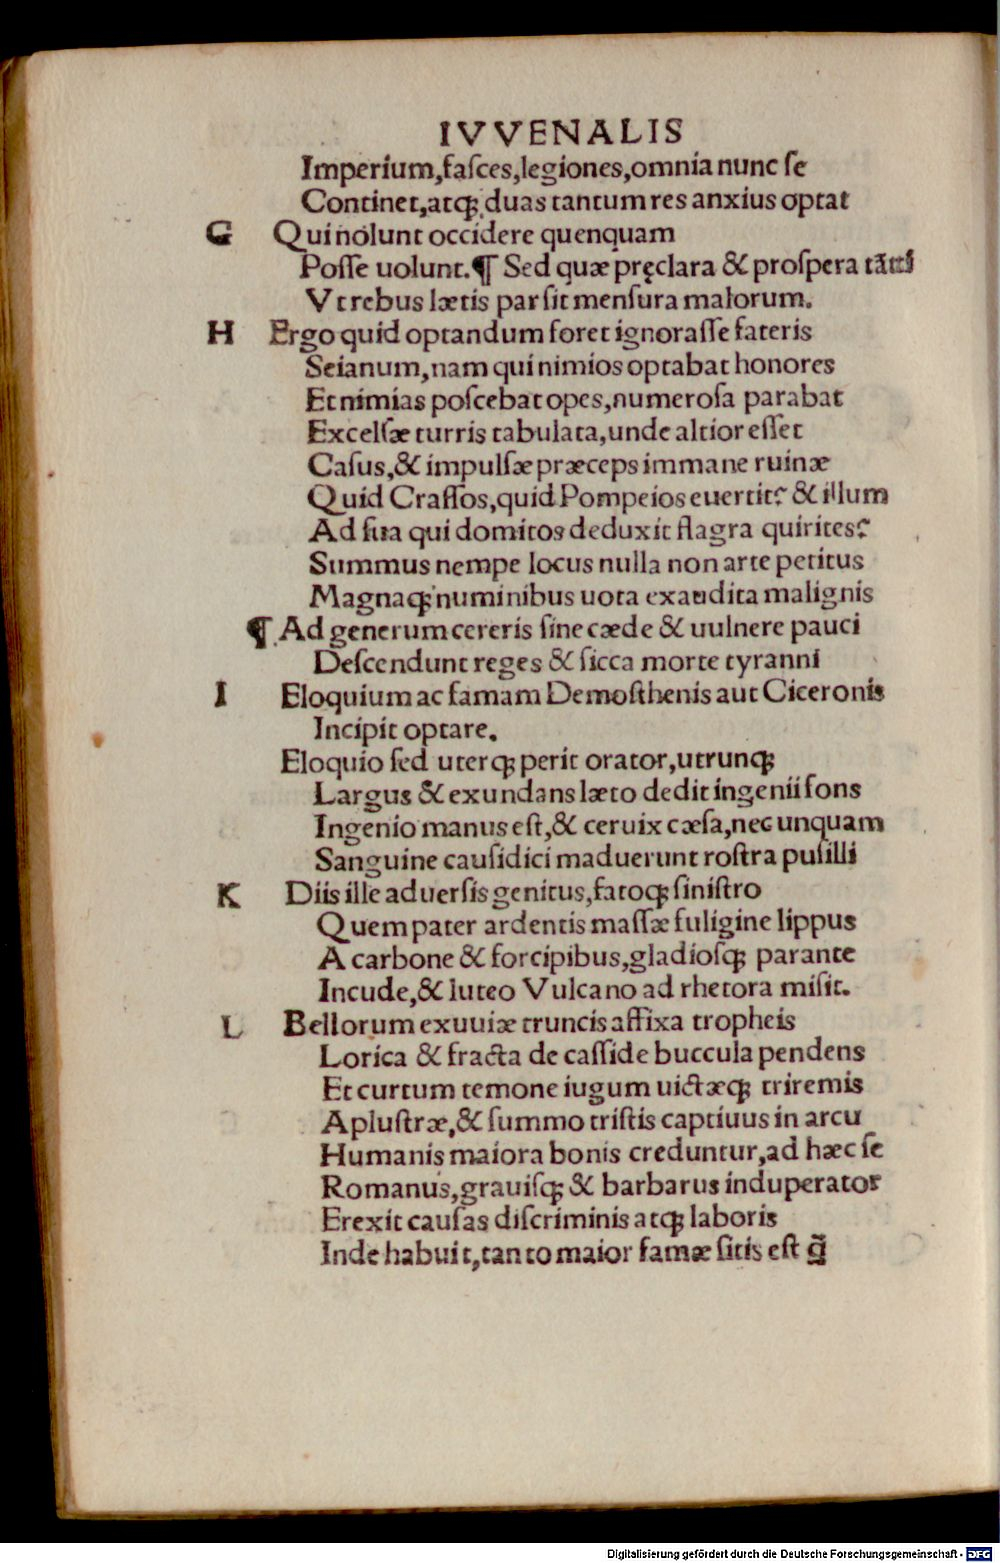 IVVENALIS
Imperium,faſces,legiones,omnia nunc ſe
Continet,atq; duas tantum res anxius optat
G Qui nolunt occidere quenquam
Poſſe uolunt.¶ Sed quæ pręclara & proſpera tãti
Vt rebus lætis par ſit menſura malorum.
H Ergo quid optandum foret ignoraſſe fateris
Seianum,nam qui nimios optabat honores
Et nimias poſcebat opes,numeroſa parabat
Excelſæ turris tabulata,unde altior eſſet
Caſus,& impulſæ præceps immane ruinæ
Quid Craſſos,quid Pompeios euertit? & illum
Ad ſua qui domitos deduxit flagra quirites?
Summus nempe locus nulla non arte petitus
Magnaq; numinibus uota exaudita malignis
¶ Ad generum cereris ſine cæde & uulnere pauci
Deſcendunt reges & ſicca morte tyranni
I Eloquium ac famam Demoſthenis aut Ciceronis
Incipit optare.
Eloquio ſed uterq; perit orator,utrunq;
Largus & exundans læto dedit ingenii fons
Ingenio manus eſt,& ceruix cæſa,nec unquam
Sanguine cauſidici maduerunt roſtra puſilli
K Diis ille aduerſis genitus,fatoq; ſiniſtro
Quem pater ardentis maſſæ fuligine lippus
A carbone & forcipibus,gladioſq; parante
Incude,& luteo Vulcano ad rhetora miſit.
L Bellorum exuuiæ truncis affixa tropheis
Lorica & fracta de caſſide buccula pendens
Et curtum temone iugum uictæq; triremis
Apluſtræ,& ſummo triſtis captiuus in arcu
Humanis maiora bonis creduntur,ad hæc ſe
Romanus,grauiſq; & barbarus induperator
Erexit cauſas diſcriminis atq; laboris
Inde habuit,tanto maior famæ ſitis eſt q̃
Digitalisierung gefördert durch die Deutsche Forschungsgemeinschaft - DFG